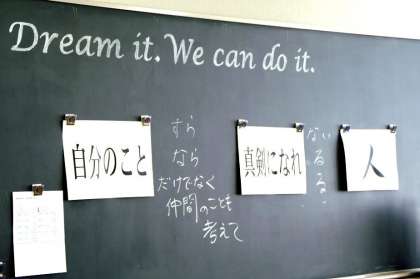 Dream it. We can do it.
自分のこと
すら
なら
だけでなく
仲間のことも
考えて
真剣になれ
ない
る
る
人